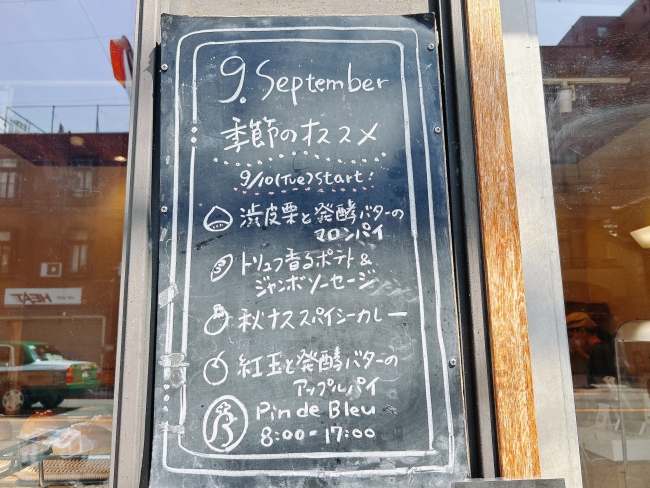 9. September
季節のオススメ
9/10(Tue)start!
渋皮栗と発酵バターの
マロンパイ
トリュフ香るポテト&
ジャンボソーセージ
秋ナススパイシーカレー
紅玉と発酵バターの
アップルパイ
Pin de Bleu
8:00-17:00
HEAT